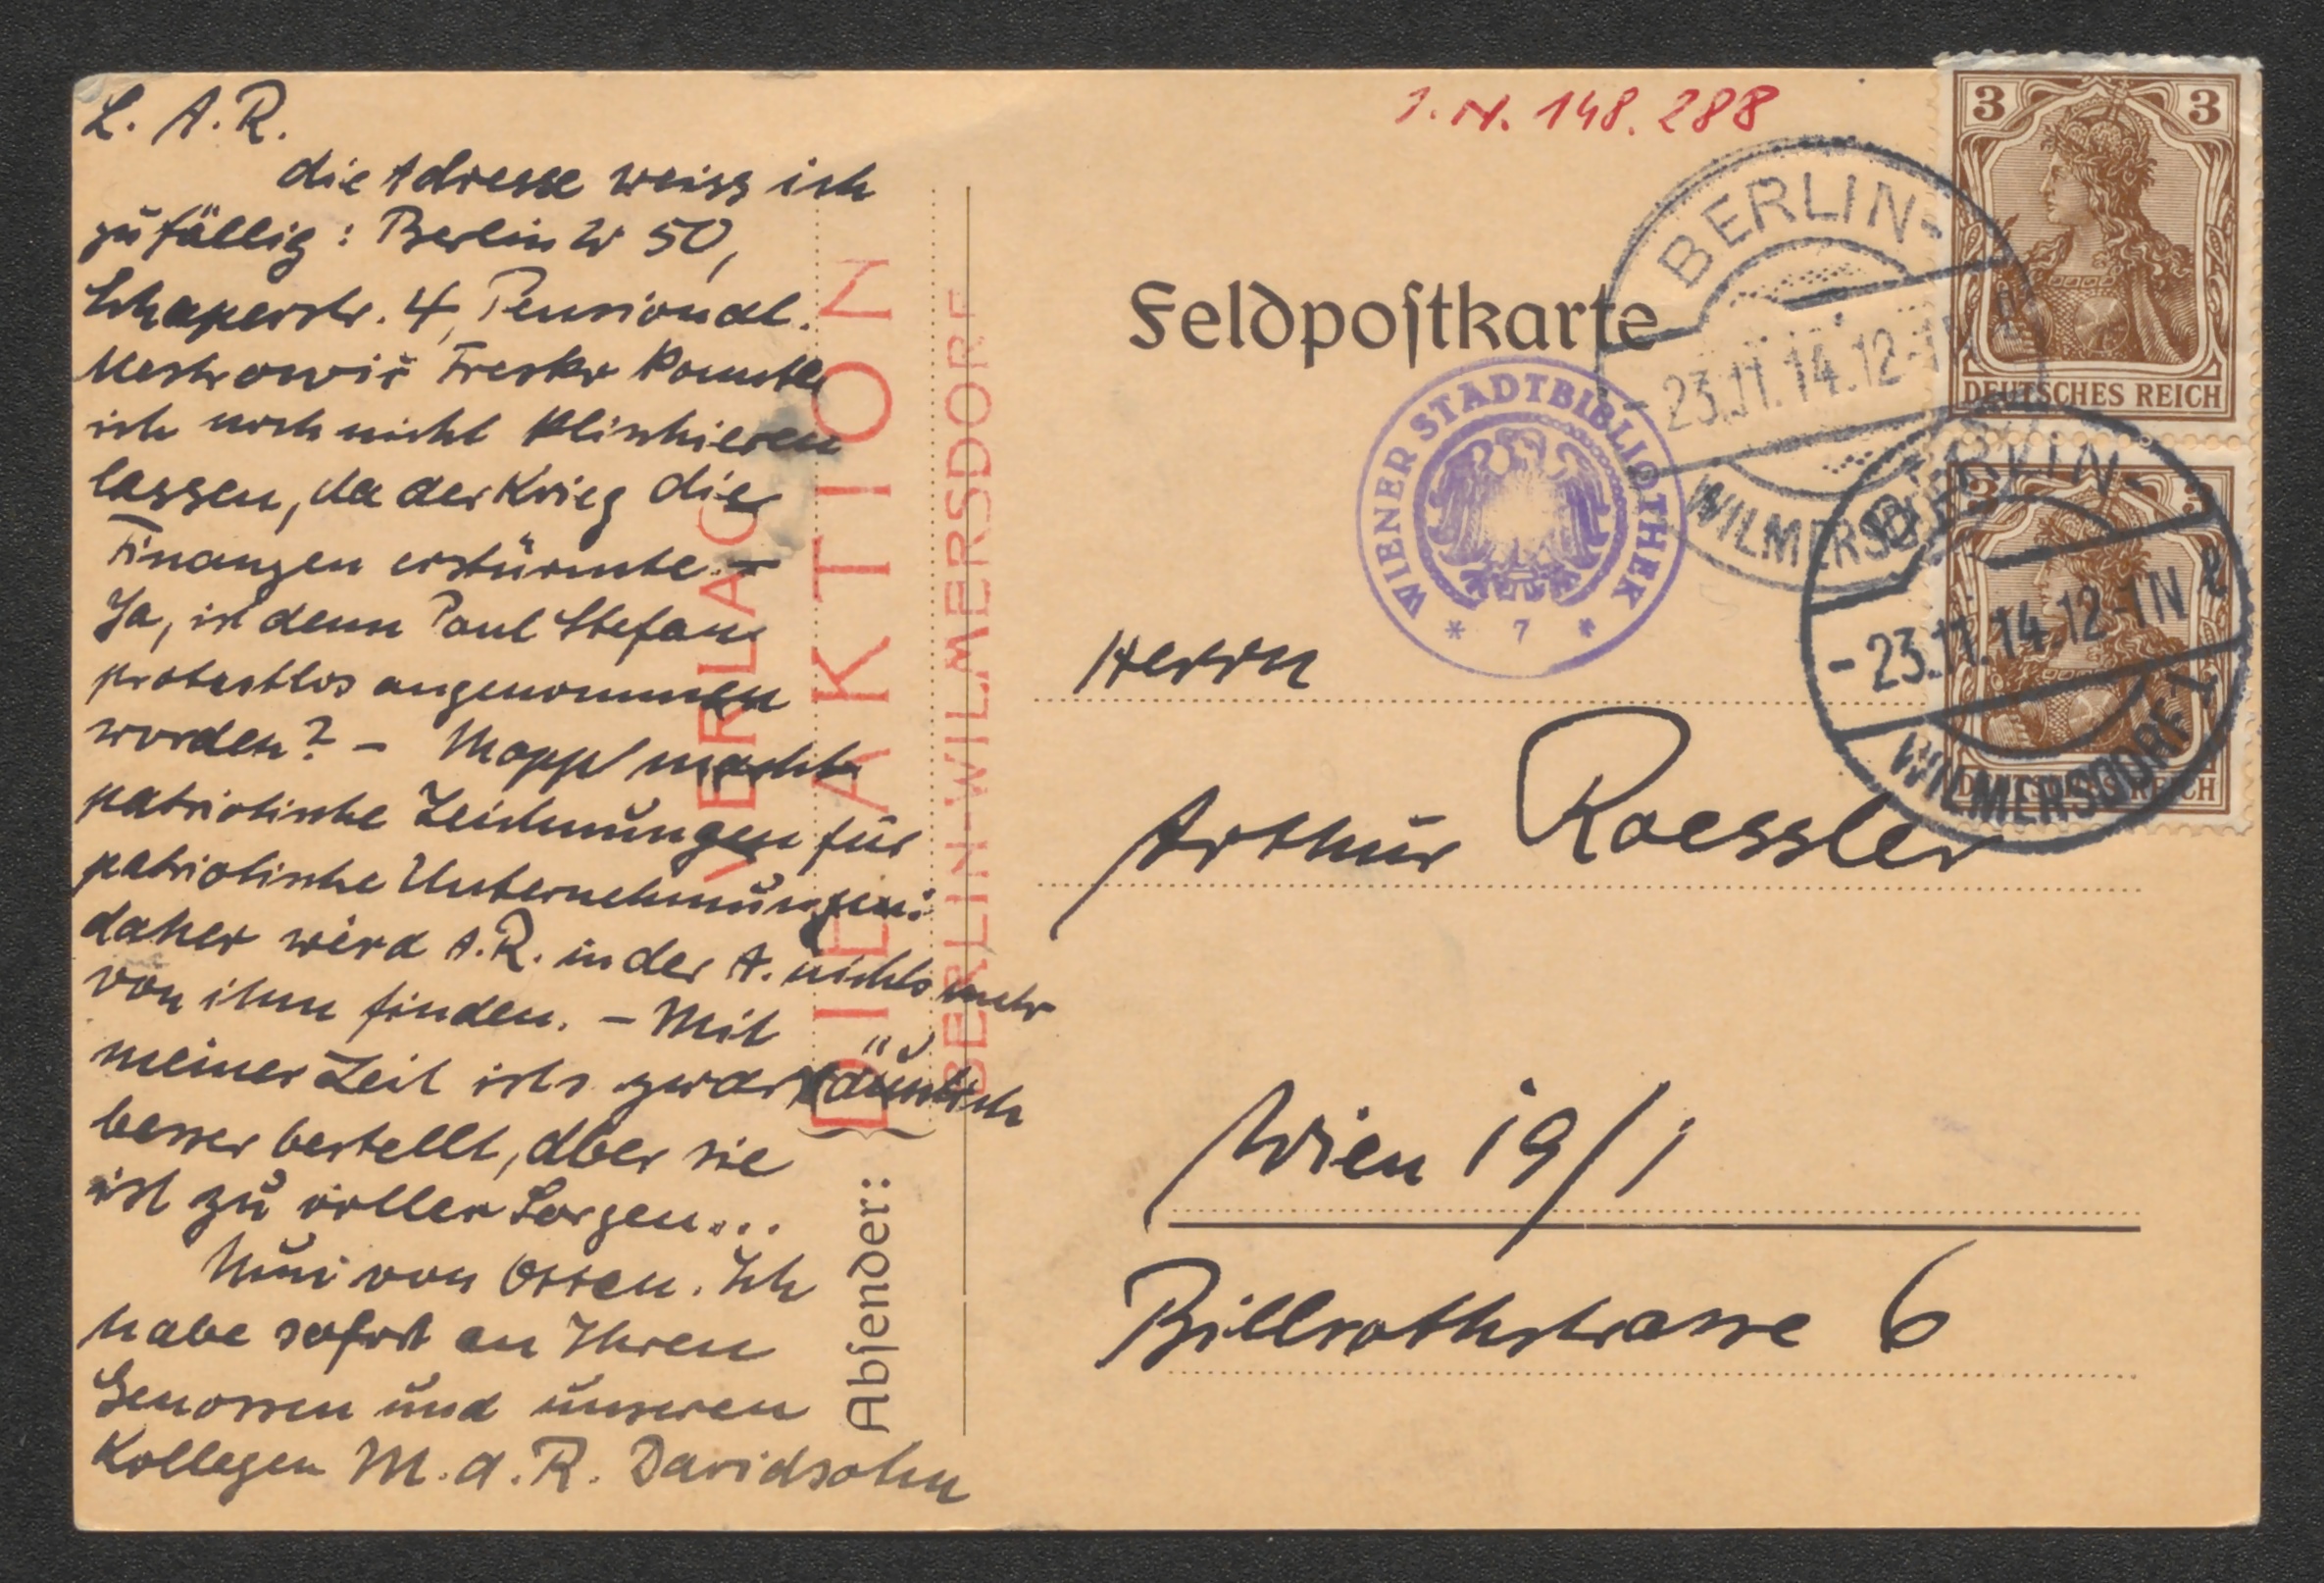 L. A. R.
die Adresse weiss ich
zufällig: Berlin W 50,
Schaperstr. 4, Pension
Mestrovič Fresko konnte
ich noch nicht klischieren
lassen, da der Krieg die
Finanzen erstürmte. –
Ja, ist denn Paul Stefan
protestlos angenommen
worden? – Mopp macht
patriotische Zeichnungen für
patriotische Unternehmungen:
daher wird A.R. in der A. nichts mehr
von ihm finden. – Mit
meiner Zeit ists zwar räumlich
besser bestellt, aber sie
ist zu voller Sorgen...
Nun von Osten. Ich
habe sofort an Ihren
Genossen und unseren
Kollegen M.d.R. Davidsohn
VERLAG
DIE AKTION
BERLIN-WILMERSDORF
Absender:
J.N. 148.288
Feldpostkarte
WIENER STADTBIBLIOTHEK
* 7 *
3 3
DEUTSCHES REICH
BERLIN-
23.11.14.12-1N
WILMERSDORF
3 3
DEUTSCHES REICH
BERLIN-
-23.11.14.12-1N
WILMERSDORF 1
Herrn
Arthur Roessler
Wien 19/1
Billrothstrasse 6